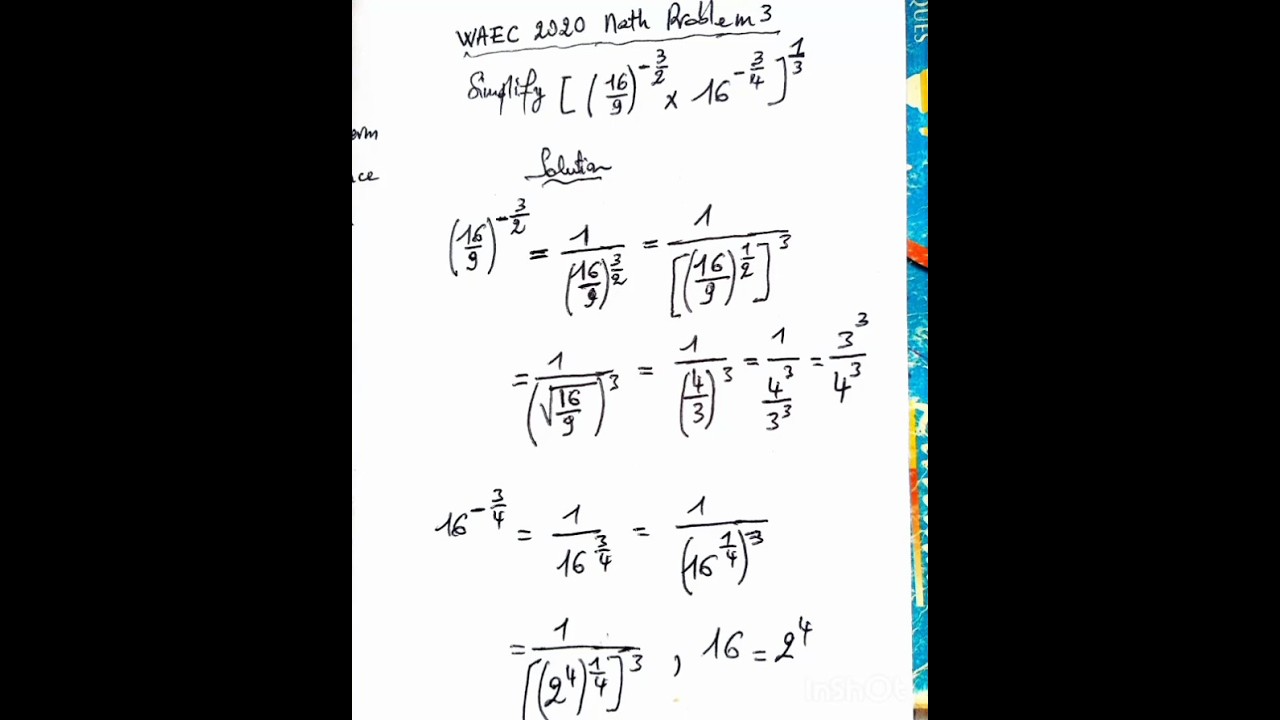 QUES
WAEC 2020 Math Problem 3
Simplify [(16/9)^(-3/2) x 16^(-3/4)]^(1/3)
erm
ce
Solution
(16/9)^(-3/2) = 1/(16/9)^(3/2) = 1/[(16/9)^(1/2)]^3
= 1/(√(16/9))^3 = 1/(4/3)^3 = 1/(4^3/3^3) = 3^3/4^3
16^(-3/4) = 1/16^(3/4) = 1/(16^(1/4))^3
= 1/[(2^4)^(1/4)]^3 , 16 = 2^4
InShOt